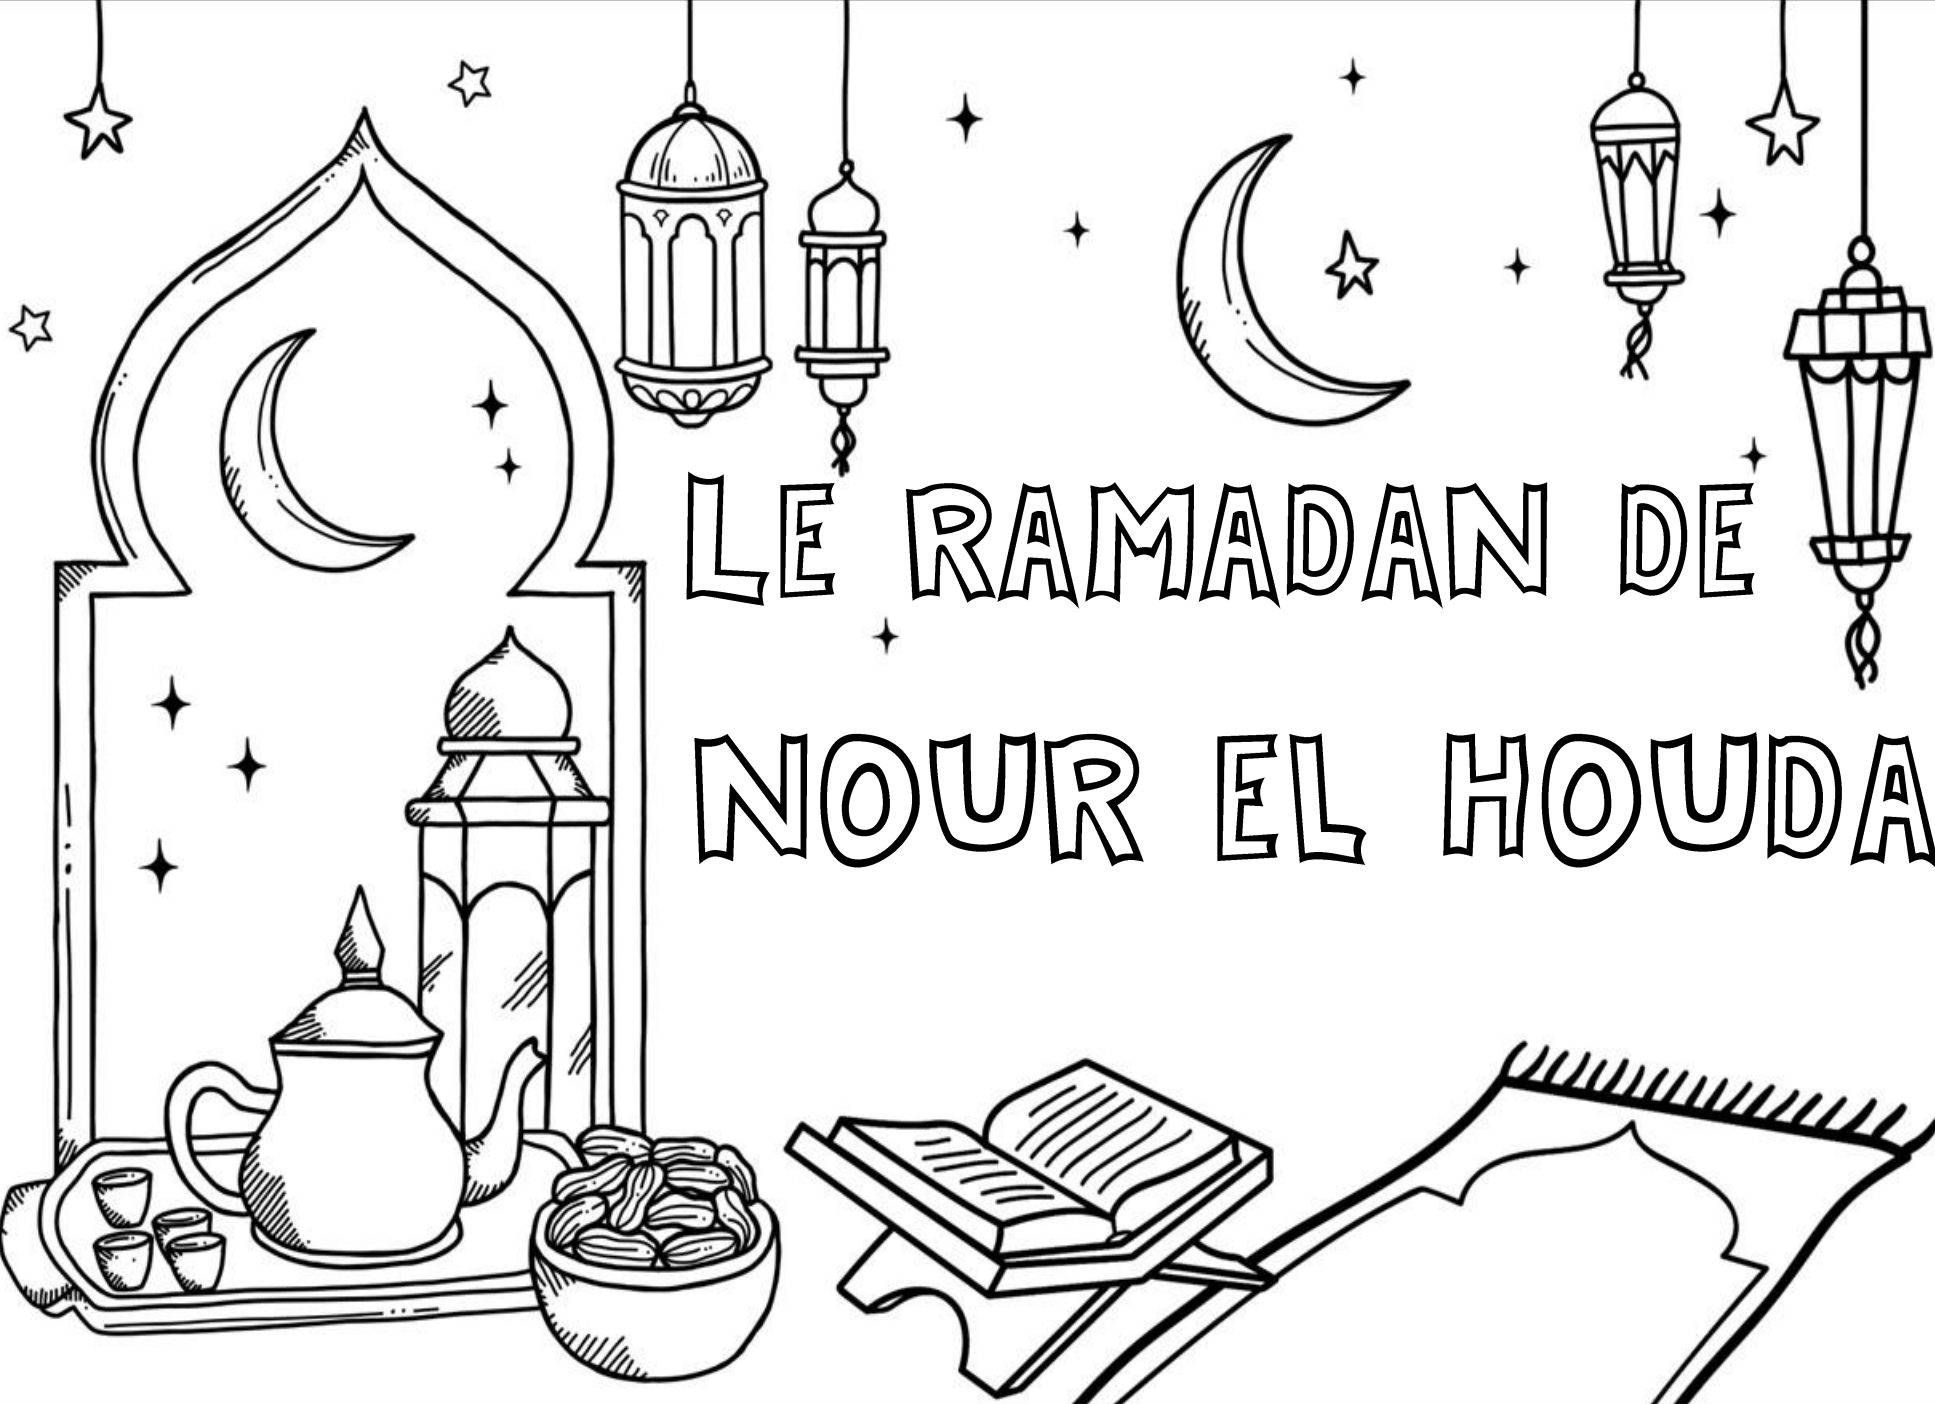 LE RAMADAN DE
NOUR EL HOUDA